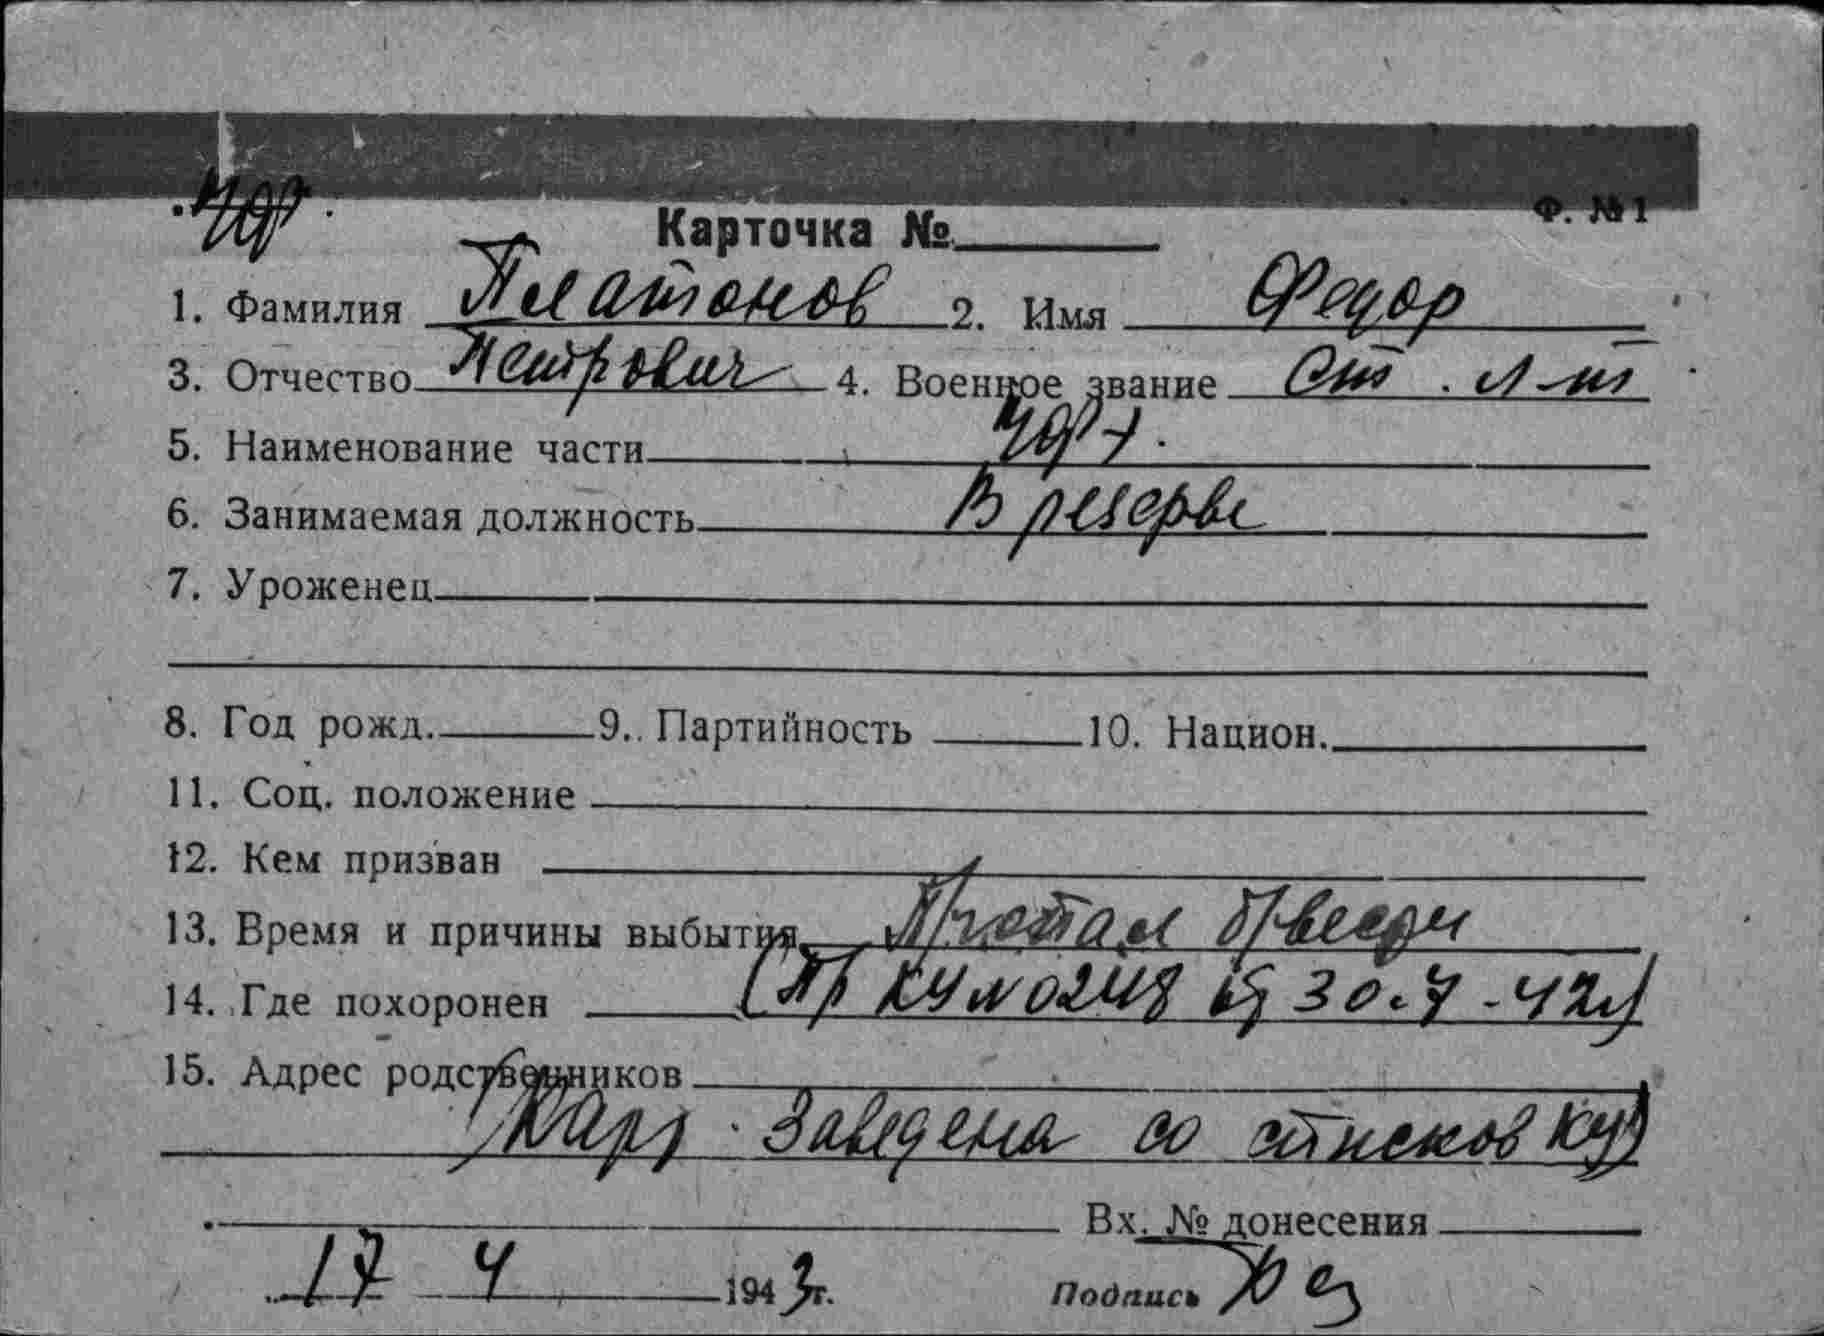 Ф. №1
Карточка №
1. Фамилия Платонов 2. Имя Федор
3. Отчество Петрович 4. Военное звание Ст. л-т
5. Наименование части
6. Занимаемая должность В резерве
7. Уроженец
8. Год рожд. 9. Партийность 10. Национ.
11. Соц. положение
12. Кем призван
13. Время и причины выбытия Пропал
14. Где похоронен (Пр 30.4-42г)
15. Адрес родственников
Заведена со списков КУ)
Вх. № донесения
17 4 1943г. Подпись